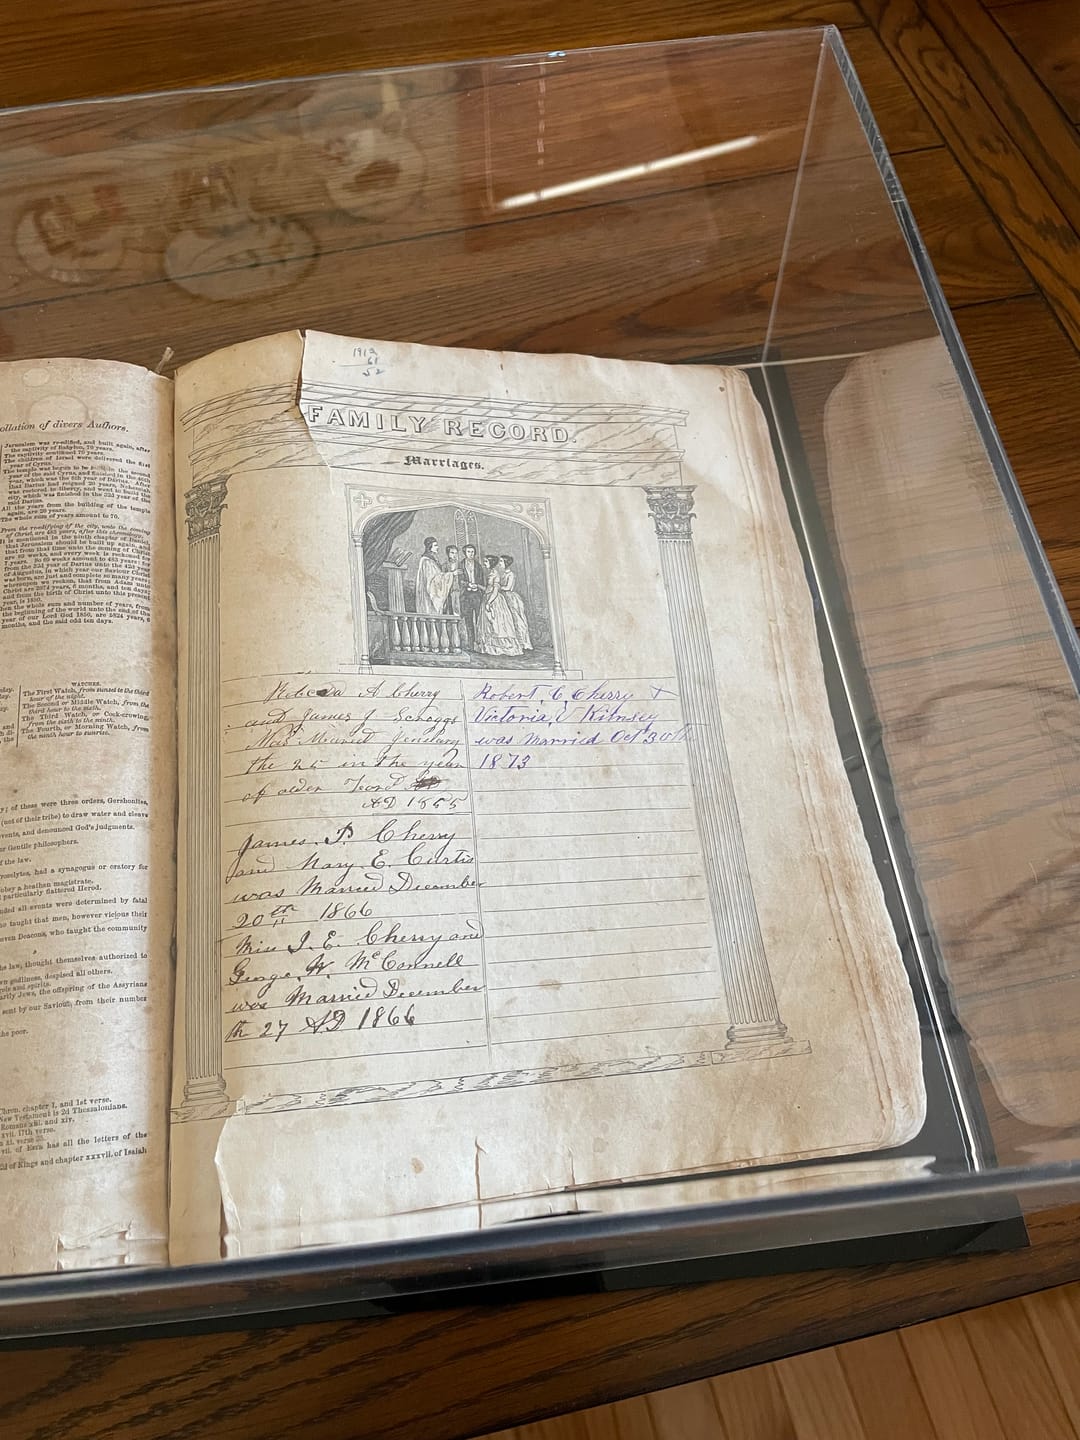 ollation of divers Authors.
Jerusalem was re-edified, and built again, after
the captivity of Babylon, 70 years.
The captivity continued 70 years.
The children of Israel were delivered the first
year of Cyrus.
The temple was begun to be in the second
year of the said Cyrus, and finished in the
that Darius had reigned 20 years, Nehemiah
was restored to liberty, and went to build the
city, which was finished in the 32d year of the
said Darius.
All the years from the building of the temple
again, are 26 years.
The whole sum of years amount to 70.
From the re-edifying of the city, unto the coming
of Christ, are 483 years, after this chronology.
It is mentioned in the ninth chapter of Daniel,
that Jerusalem should be built up again, and
that from that time unto the coming of Christ
are 69 weeks, and every week is reckoned for
7 years. So 69 weeks amount to 483 years; for
from the 32d year of Darius unto the 42d year
of Augustus, in which year our Saviour Christ
was born, are just and complete so many years,
whereupon we reckon, that from Adam unto
Christ are 3974 years, 6 months, and ten days;
and from the birth of Christ unto this present
year, is 1850.
hen the whole sum and number of years, from
the beginning of the world unto the end of the
year of our Lord God 1850, are 5824 years, 6
months, and the said odd ten days.
WATCHES.
The First Watch, from sunset to the third
hour of the night.
The Second or Middle Watch, from the
third hour to the sixth.
The Third Watch, or Cock-crowing,
from the sixth to the ninth.
The Fourth, or Morning Watch, from
the ninth hour to sunrise.
; of these were three orders, Gershonites,
(not of their tribe) to draw water and cleave
events, and denounced God's judgments.
or Gentile philosophers.
f the law.
roselytes, had a synagogue or oratory for
obey a heathan magistrate.
particularly flattered Herod.
nded all events were determined by fatal
ho taught that men, however vicious their
even Deacons, who taught the community
he law, thought themselves authorized to
wn godliness, despised all others.
els and spirits.
artly Jews, the offspring of the Assyrians
sent by our Saviour, from their number
the poor.
Chron. chapter I, and 1st verse.
New Testament is 2d Thessalonians.
Romans xiii. and xiv.
xvii. 17th verse.
vii. of Ezra has all the letters of the
2d of Kings and chapter xxxvii. of Isaiah
1913
61
52
FAMILY RECORD.
Marriages.
A Cherry
and James J Scroggs
Was Maried
the 25 in the year
of
AD 1855
James. P. Cherry
and Mary E. Curtis
was Married December
20th 1866
Miss I. E. Cherry and
George. W. McConnell
was Married December
th 27 AD 1866
Robert C Cherry X
Victoria E Kimsey
was Married Oct 30th
1873